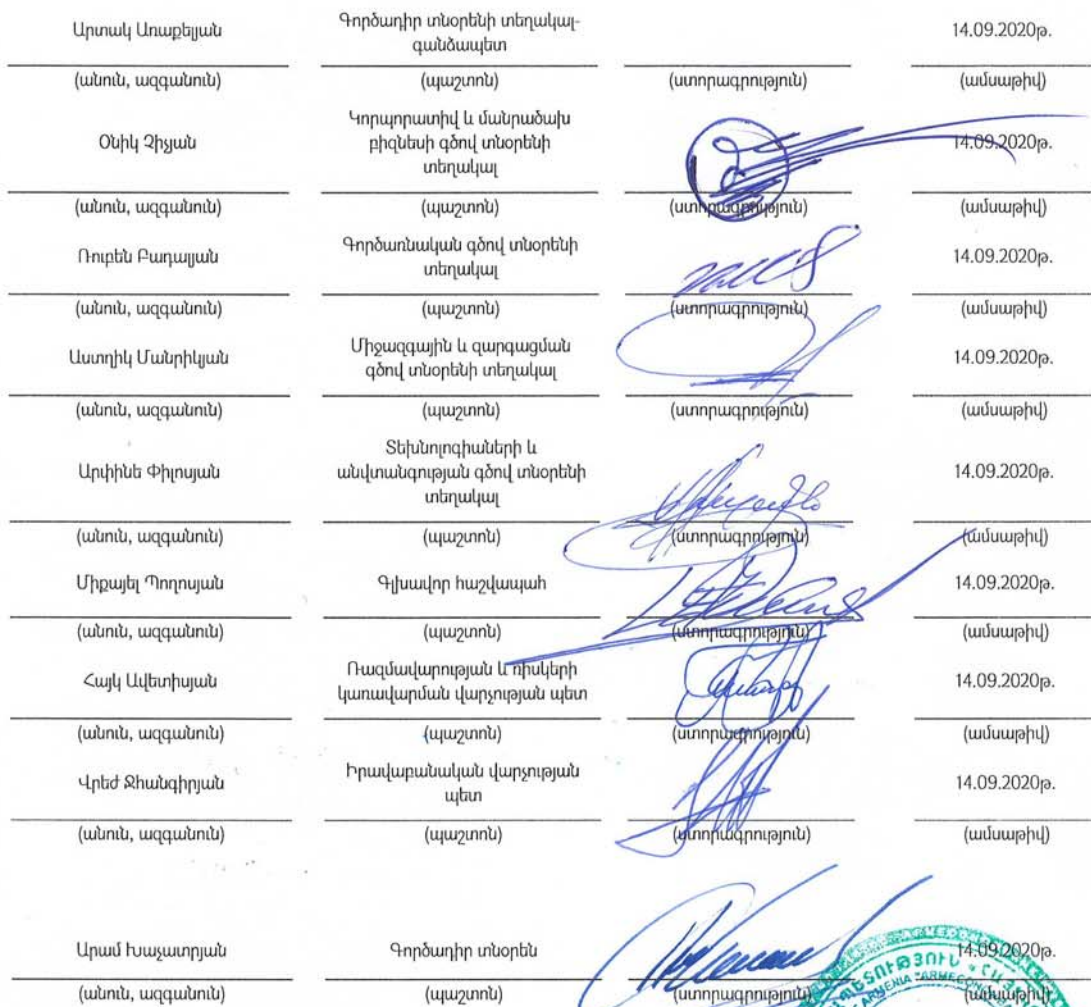 Արտակ Առաքելյան Գործադիր տնօրենի տեղակալ-
գանձապետ 14.09.2020թ.
(անուն, ազգանուն) (պաշտոն) (ստորագրություն) (ամսաթիվ)
Օնիկ Չիչյան Կորպորատիվ և մանրածախ
բիզնեսի գծով տնօրենի
տեղակալ 14.09.2020թ.
(անուն, ազգանուն) (պաշտոն) (ստորագրություն) (ամսաթիվ)
Ռուբեն Բադալյան Գործառնական գծով տնօրենի
տեղակալ 14.09.2020թ.
(անուն, ազգանուն) (պաշտոն) (ստորագրություն) (ամսաթիվ)
Աստղիկ Մանրիկյան Միջազգային և զարգացման
գծով տնօրենի տեղակալ 14.09.2020թ.
(անուն, ազգանուն) (պաշտոն) (ստորագրություն) (ամսաթիվ)
Արփինե Փիլոսյան Տեխնոլոգիաների և
անվտանգության գծով տնօրենի
տեղակալ 14.09.2020թ.
(անուն, ազգանուն) (պաշտոն) (ստորագրություն) (ամսաթիվ)
Միքայել Պողոսյան Գլխավոր հաշվապահ 14.09.2020թ.
(անուն, ազգանուն) (պաշտոն) (ստորագրություն) (ամսաթիվ)
Հայկ Ավետիսյան Ռազմավարության և ռիսկերի
կառավարման վարչության պետ 14.09.2020թ.
(անուն, ազգանուն) (պաշտոն) (ստորագրություն) (ամսաթիվ)
Վրեժ Ջհանգիրյան Իրավաբանական վարչության
պետ 14.09.2020թ.
(անուն, ազգանուն) (պաշտոն) (ստորագրություն) (ամսաթիվ)
Արամ Խաչատրյան Գործադիր տնօրեն 14.09.2020թ.
(անուն, ազգանուն) (պաշտոն) (ստորագրություն) (ամսաթիվ)